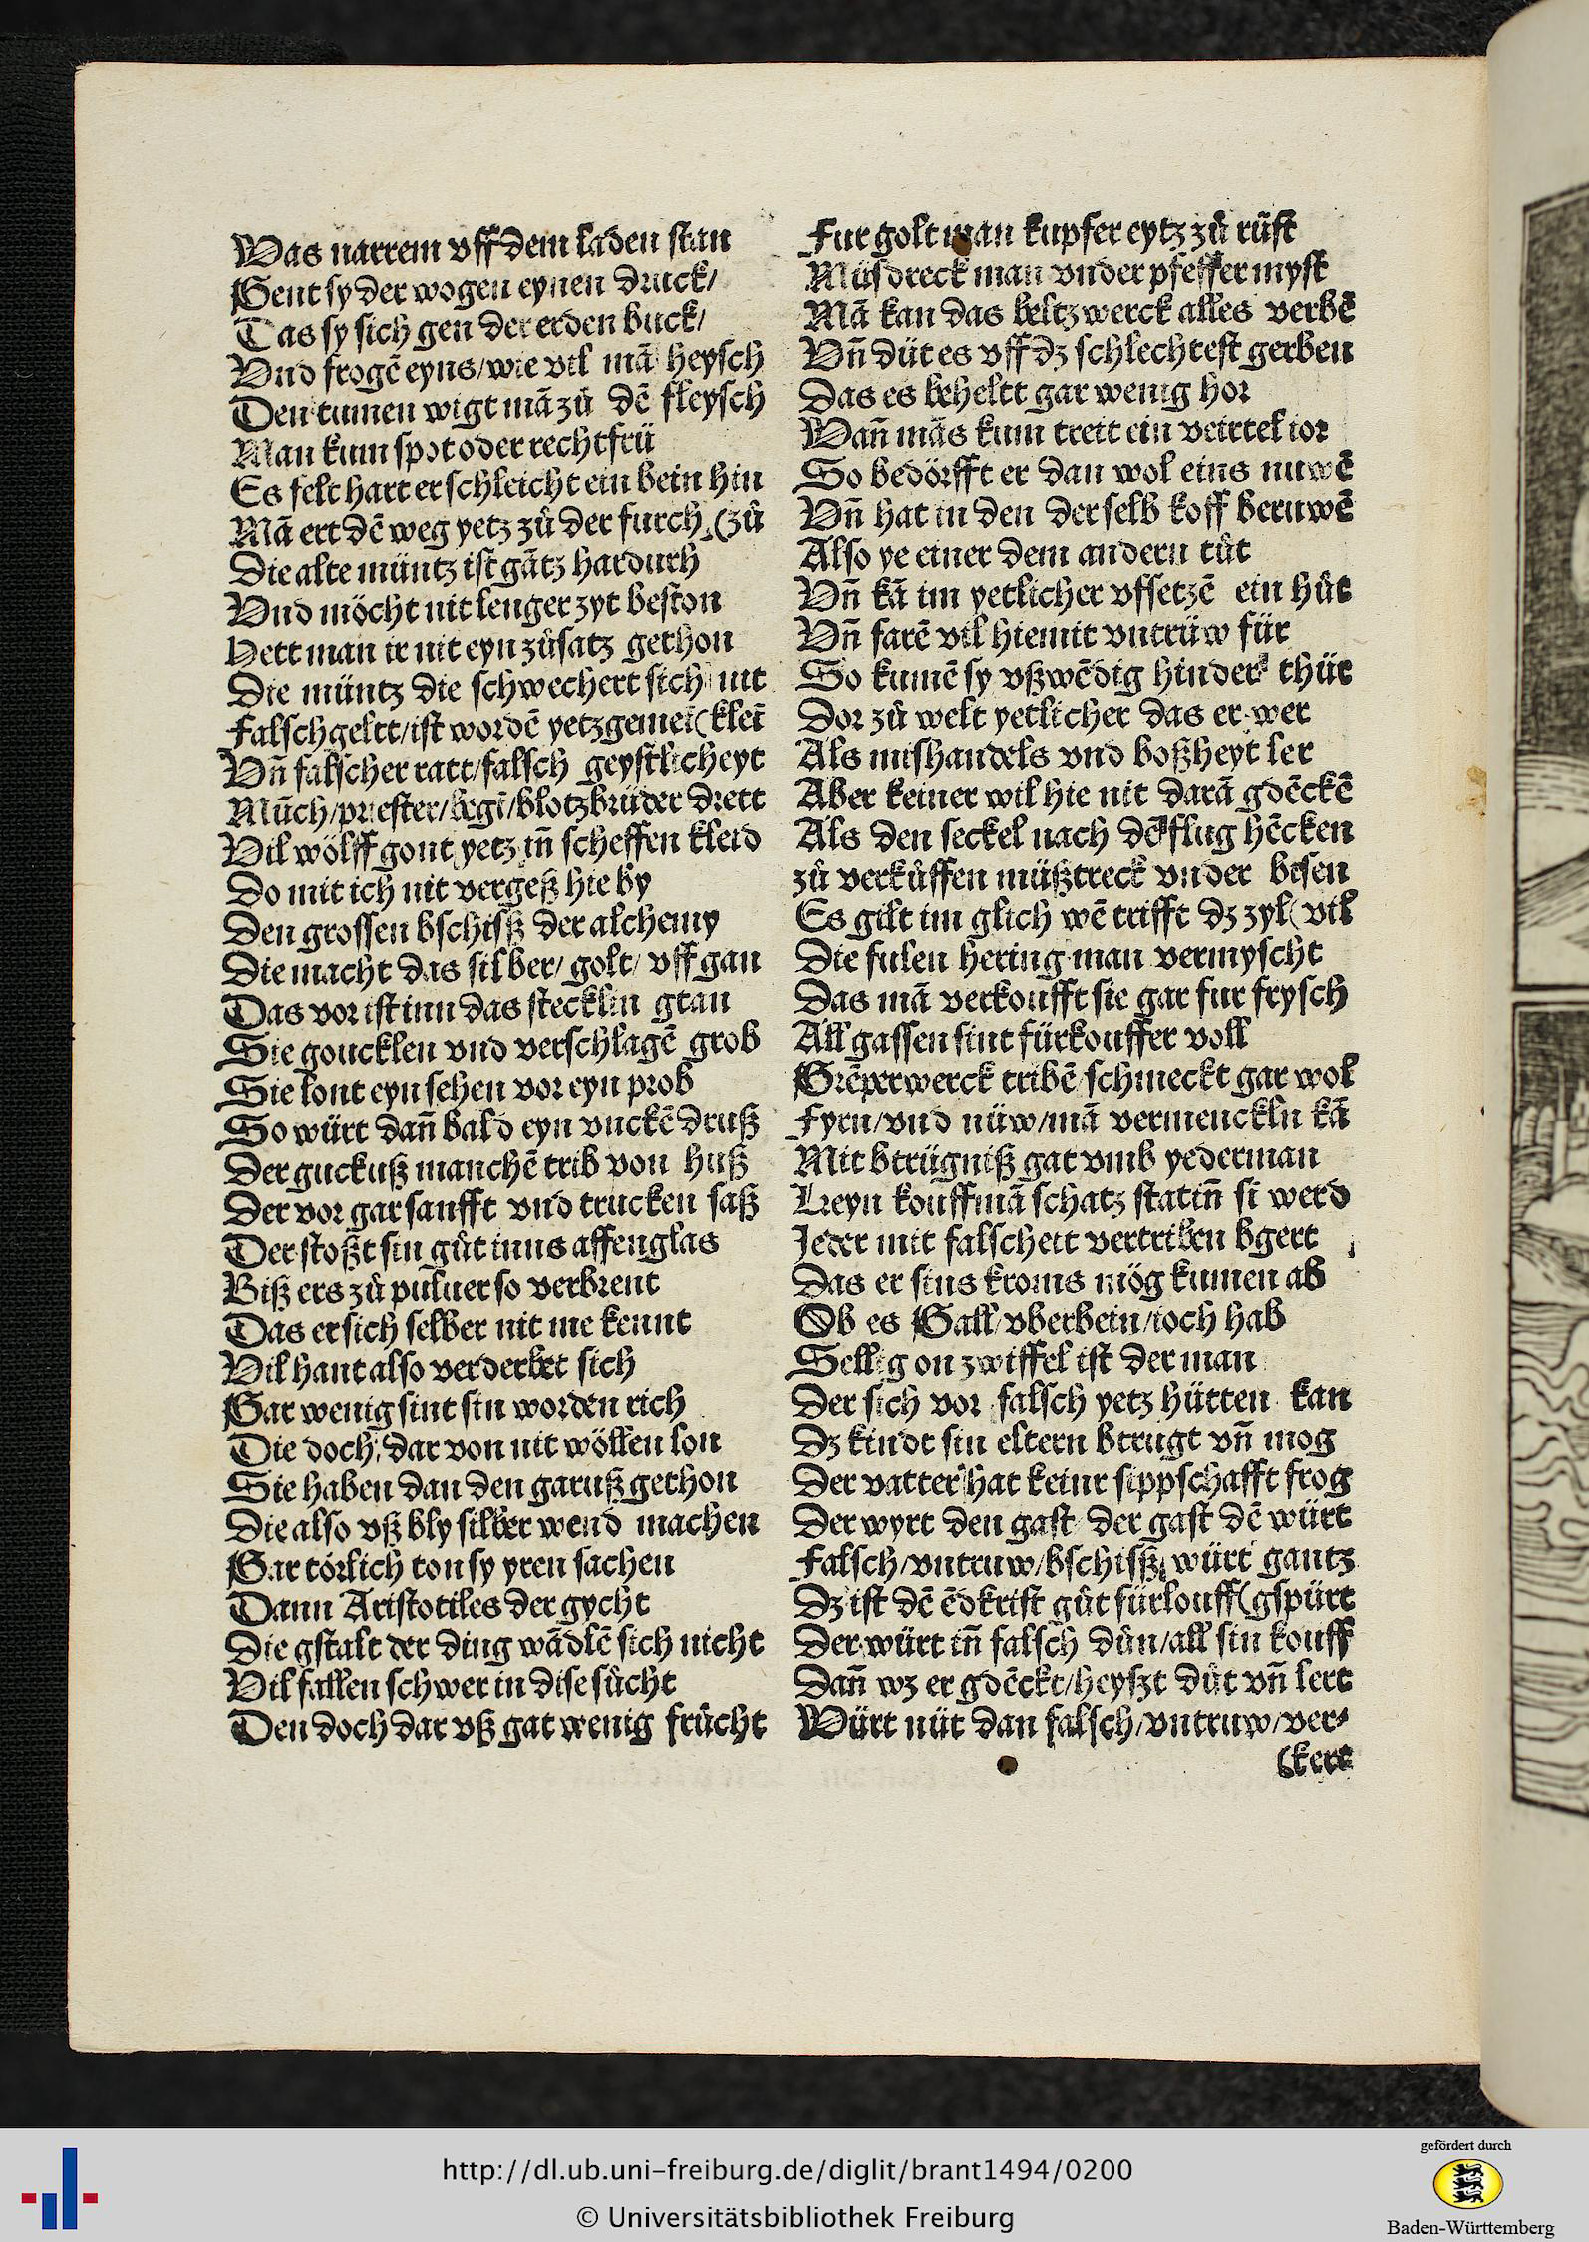 Was narrem vff dem laden stan
Gent sy der wogen eynen druck/
Das sy sich gen der erden buck/
Vnd frogē eyns/wie vil mā heysch
Den tumen wigt mā zů dē fleysch
Man kum spot oder recht frü
Es felt hart er schleicht ein bein hin
Mā ert dē weg yetz zů der furch (zů
Die alte müntz ist gātz hardurh
Vnd möcht nit lenger zyt beston
Hett man ir nit eyn zůsatz gethon
Die müntz die schwechert sich nit
Falsch geltt/ist wordē yetz gemei(kleī
Vn̄ falscher ratt/falsch geystlicheyt
Mūch/priester/begī/blotzbrüder drett
Vil wölff gont yetz in̄ scheffen kleid
Do mit ich nit vergeß hie by
Den grossen bschisß der alchemy
Die macht das silber/golt/vff gan
Das vor ist inn das stecklin gtan
Sie goucklen vnd verschlagē grob
Sie lont eyn sehen vor eyn prob
So würt dan̄ bald eyn vnckē druß
Der guckuß manchē trib von huß
Der vor gar sanfft vnd trucken saß
Der stoßt sin gůt inns affenglas
Biß ers zů puluer so verbrent
Das er sich selber nit me kennt
Vil hant also verderbet sich
Gar wenig sint sin worden rich
Die doch dar von nit wöllen lon
Sie haben dan den garuß gethon
Die also vß bly silber wend machen
Gar törlich ton sy yren sachen
Dann Aristotiles der gycht
Die gstalt der ding wādlē sich nicht
Vil fallen schwer in dise sůcht
Den doch dar vß gat wenig frücht
Fur golt man kupfer eytz zů rüst
Müsdreck man vnder pfeffer myst
Mā kan das beltzwerck alles verbē
Vn̄ düt es vff dz schlechtest gerben
Das es beheltt gar wenig hor
Wan̄ mās kum treit ein veirtel ior
So bedörfft er dan wol eins nuwē
Vn̄ hat in den derselb koff beruwē
Also ye einer dem andern tůt
Vn̄ kā im yetlicher vffsetzē ein hůt
Vn̄ farē vil hiemit vntrüw für
So kumē sy vßwēdig hinder thür
Dor zů welt yetlicher das er wer
Als mishandels vnd boßheyt ler
Aber keiner wil hie nit darā gdēckē
Als den seckel nach dē flug hēcken
zů verkůffen müßtreck vnder besen
Es gilt im glich wē trifft dz zyl(vil
Die fulen hering man vermyscht
Das mā verkoufft sie gar fur frysch
All gassen sint fürkouffer voll
Grēperwerck tribē schmeckt gar wol
Fyrn/vnd nüw/mā vermenckln kā
Mit btrügniß gat vmb yederman
Keyn kouffmā schatz statin̄ si werd
Jeder mit falscheit vertriben bgert
Das er sins kroms mög kumen ab
Ob es Gall/vberbein/ioch hab
Sellig on zwiffel ist der man
Der sich vor falsch yetz hütten kan
Dz kindt sin eltern btrugt vn̄ mog
Der vatter hat keinr sippschafft frog
Der wyrt den gast der gast dē würt
Falsch/vntruw/bschisß würt gantz
Dz ist dē ēdkrist gůt fürlouff(gspürt
Der würt in̄ falsch důn/all sin kouff
Dan̄ wz er gdēckt/heyszt düt vn̄ lert
Würt nüt dan falsch/vntruw/ver⸗
(kert
http://dl.ub.uni-freiburg.de/diglit/brant1494/0200
© Universitätsbibliothek Freiburg
gefördert durch
Baden-Württemberg